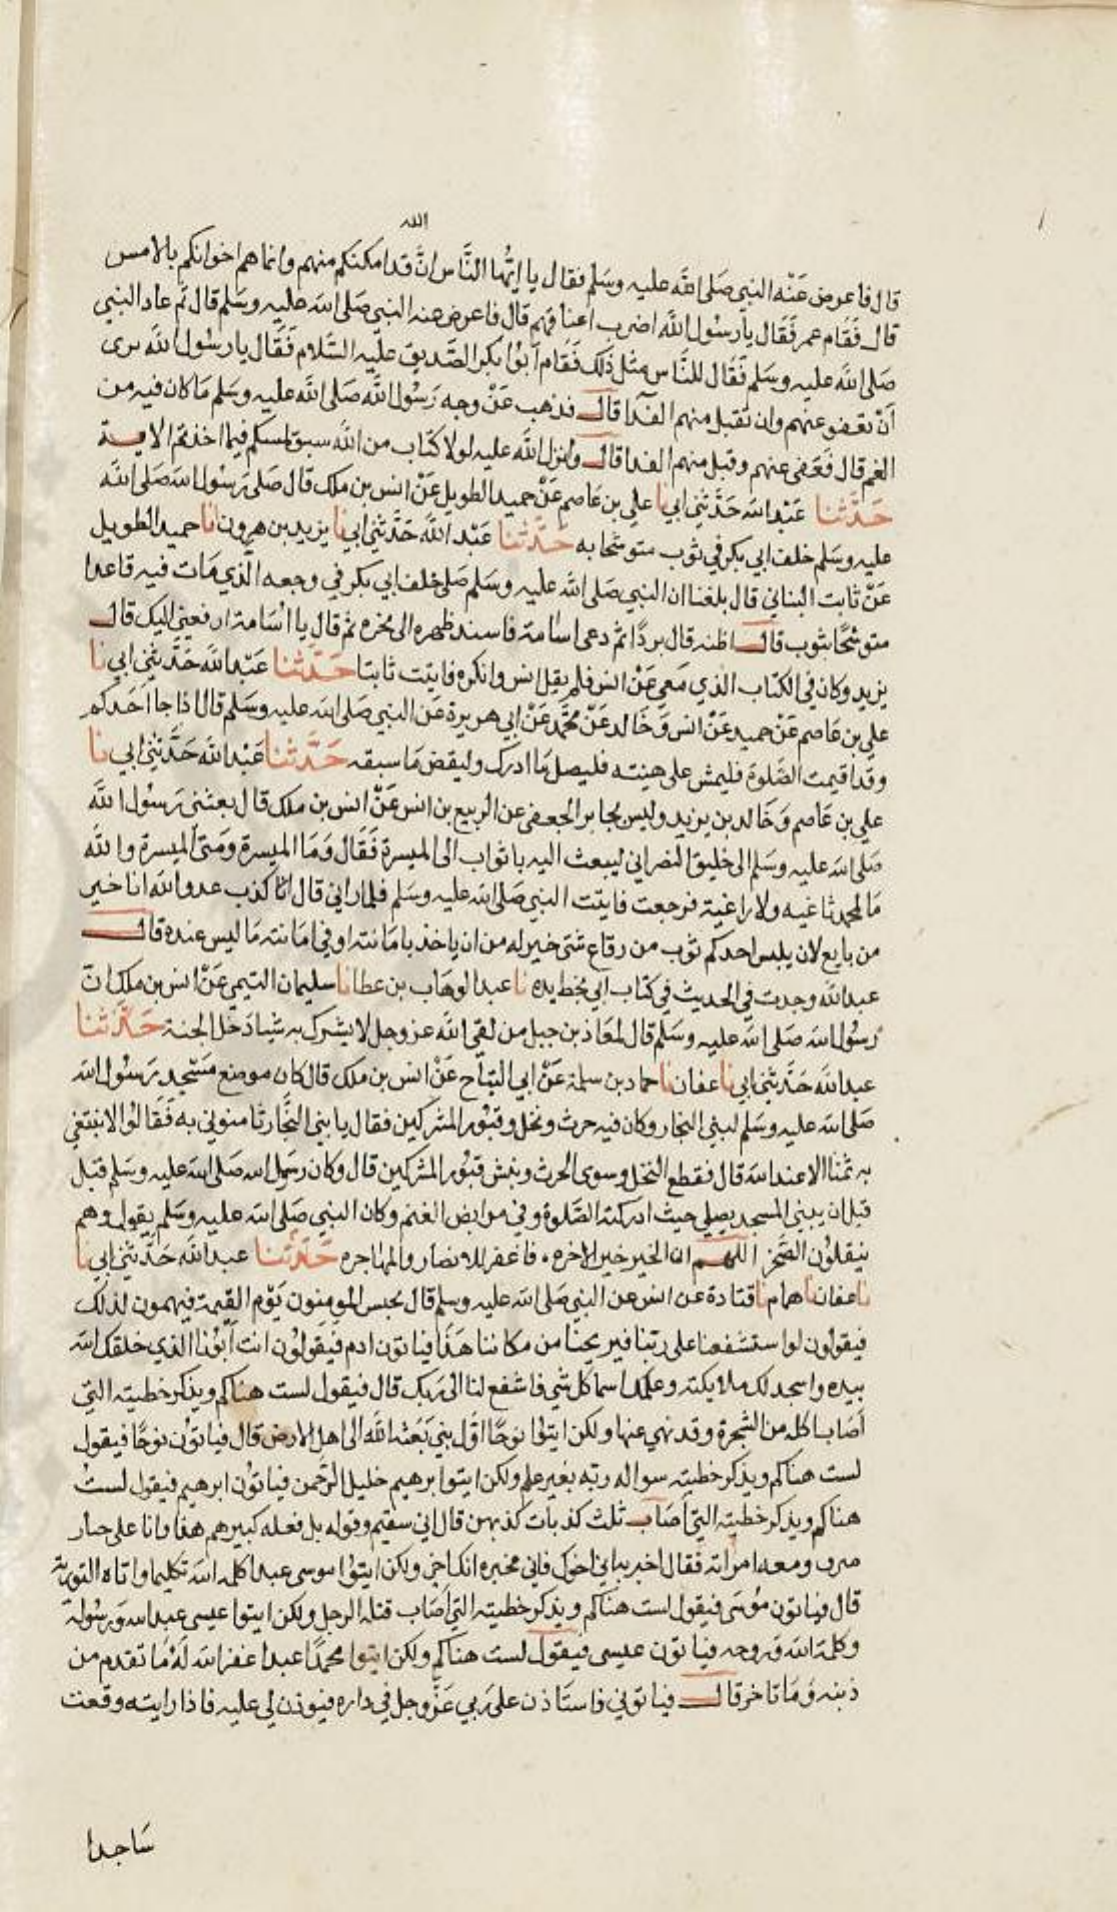 الله
قال فاعرض عنه النبي صلى الله عليه وسلم فقال يا ايها الناس ان قد امكنكم منهم وانما هم اخوانكم بالامس
قال فقام عمر فقال يا رسول الله اضرب اعناقهم قال فاعرض عنه النبي صلى الله عليه وسلم قال ثم عاد النبي
صلى الله عليه وسلم فقال للناس مثل ذلك فقام ابوا بكر الصديق عليه السلام فقال يا رسول الله نرى
ان تعفو عنهم وان تقبل منهم الفدا قال فذهب عن وجه رسول الله صلى الله عليه وسلم ما كان فيه من
الغم قال فعفى عنهم وقبل منهم الفدا قال وانزل الله عليه لولا كتاب من الله سبق لمسكم فيما اخذتم الاية
حدثنا عبد الله حدثني ابي نا علي بن عاصم عن حميد الطويل عن انس بن ملك قال صلى رسول الله صلى الله
عليه وسلم خلف ابي بكر في ثوب متوشحا به حدثنا عبد الله حدثني ابي نا يزيد بن هرون انا حميد الطويل
عن ثابت البناني قال بلغنا ان النبي صلى الله عليه وسلم صلى خلف ابي بكر في وجعه الذي مات فيه قاعدا
متوشحا بثوب قال اظنه قال بردا ثم دعى اسامة فاسند ظهره الى نحره ثم قال يا اسامة ارفعني اليك قال
يزيد وكان في الكتاب الذي معي عن انس فلم يقل انس وانكره فاثبت ثابتا حدثنا عبد الله حدثني ابي نا
علي بن عاصم عن حميد عن انس وخالد عن محمد عن ابي هريرة عن النبي صلى الله عليه وسلم قال اذا جا احدكم
وقد اقيمت الصلوة فليمش على هينته فليصل ما ادرك وليقض ما سبقه حدثنا عبد الله حدثني ابي نا
علي بن عاصم وخالد بن يزيد وليس بجابر الجعفي عن الربيع بن انس عن انس بن ملك قال بعثني رسول الله
صلى الله عليه وسلم الى خليق النصراني ليبعث اليه باثواب الى الميسرة فقال وما الميسرة ومتى الميسرة والله
ما لمحمد ثاغيه ولا راغية فرجعت فاتيت النبي صلى الله عليه وسلم فلما راني قال كذب عدو الله انا خير
من بايع لان يلبس احدكم ثوب من رقاع شتى خير له من ان ياخذ بامانته او في امانته ما ليس عنده قال
عبد الله وجدت في الحديث في كتاب ابي بخط يده نا عبد الوهاب بن عطا نا سليمان التيمي عن انس بن ملك ان
رسول الله صلى الله عليه وسلم قال لمعاذ بن جبل من لقي الله عز وجل لا يشرك به شيا دخل الجنة حدثنا
عبد الله حدثني ابي نا عفان نا حماد بن سلمة عن ابي التياح عن انس بن ملك قال كان موضع مسجد رسول الله
صلى الله عليه وسلم لبني النجار وكان فيه حرث ونخل وقبور المشركين فقال يا بني النجار ثامنوني به فقالوا لا نبتغي
به ثمنا الا عند الله قال فقطع النخل وسوى الحرث ونبش قبور المشركين قال وكان رسول الله صلى الله عليه وسلم قبل
قبل ان يبني المسجد يصلي حيث ادركته الصلوة وفي مرابض الغنم وكان النبي صلى الله عليه وسلم يقول وهم
ينقلون الصخر اللهم ان الخير خير الاخره فاغفر للانصار والمهاجره حدثنا عبد الله حدثني ابي نا
نا عفان نا همام نا قتادة عن انس عن النبي صلى الله عليه وسلم قال يحبس المومنون يوم القيمة فيهمون لذلك
فيقولون لو استشفعنا على ربنا فيريحنا من مكاننا هذا فياتون ادم فيقولون انت ابونا الذي خلقك الله
بيده واسجد لك ملايكته وعلمك اسما كل شي فاشفع لنا الى ربك قال فيقول لست هناكم ويذكر خطيته التي
اصاب اكله من الشجرة وقد نهي عنها ولكن ايتوا نوحا اول نبي بعثه الله الى اهل الارض قال فياتون نوحا فيقول
لست هناكم ويذكر خطيته سواله ربه بغير علم ولكن ايتوا ابرهيم خليل الرحمن فياتون ابرهيم فيقول لست
هناكم ويذكر خطيته التي اصاب ثلث كذبات كذبهن قال اني سقيم وقوله بل فعله كبيرهم هذا واتا على جبار
مترف ومعه امراته فقال اخبريه اني اخوك فاني مخبره انك اختي ولكن ايتوا موسى عبدا كلمه الله تكليما واتاه التورية
قال فياتون موسى فيقول لست هناكم ويذكر خطيته التي اصاب قتله الرجل ولكن ايتوا عيسى عبد الله ورسوله
وكلمة الله وروحه فياتون عيسى فيقول لست هناكم ولكن ايتوا محمدا عبدا غفر الله له ما تقدم من
ذنبه وما تاخر قال فياتوني فاستاذن على ربي عز وجل في داره فيوذن لي عليه فاذا رايته وقعت
ساجدا